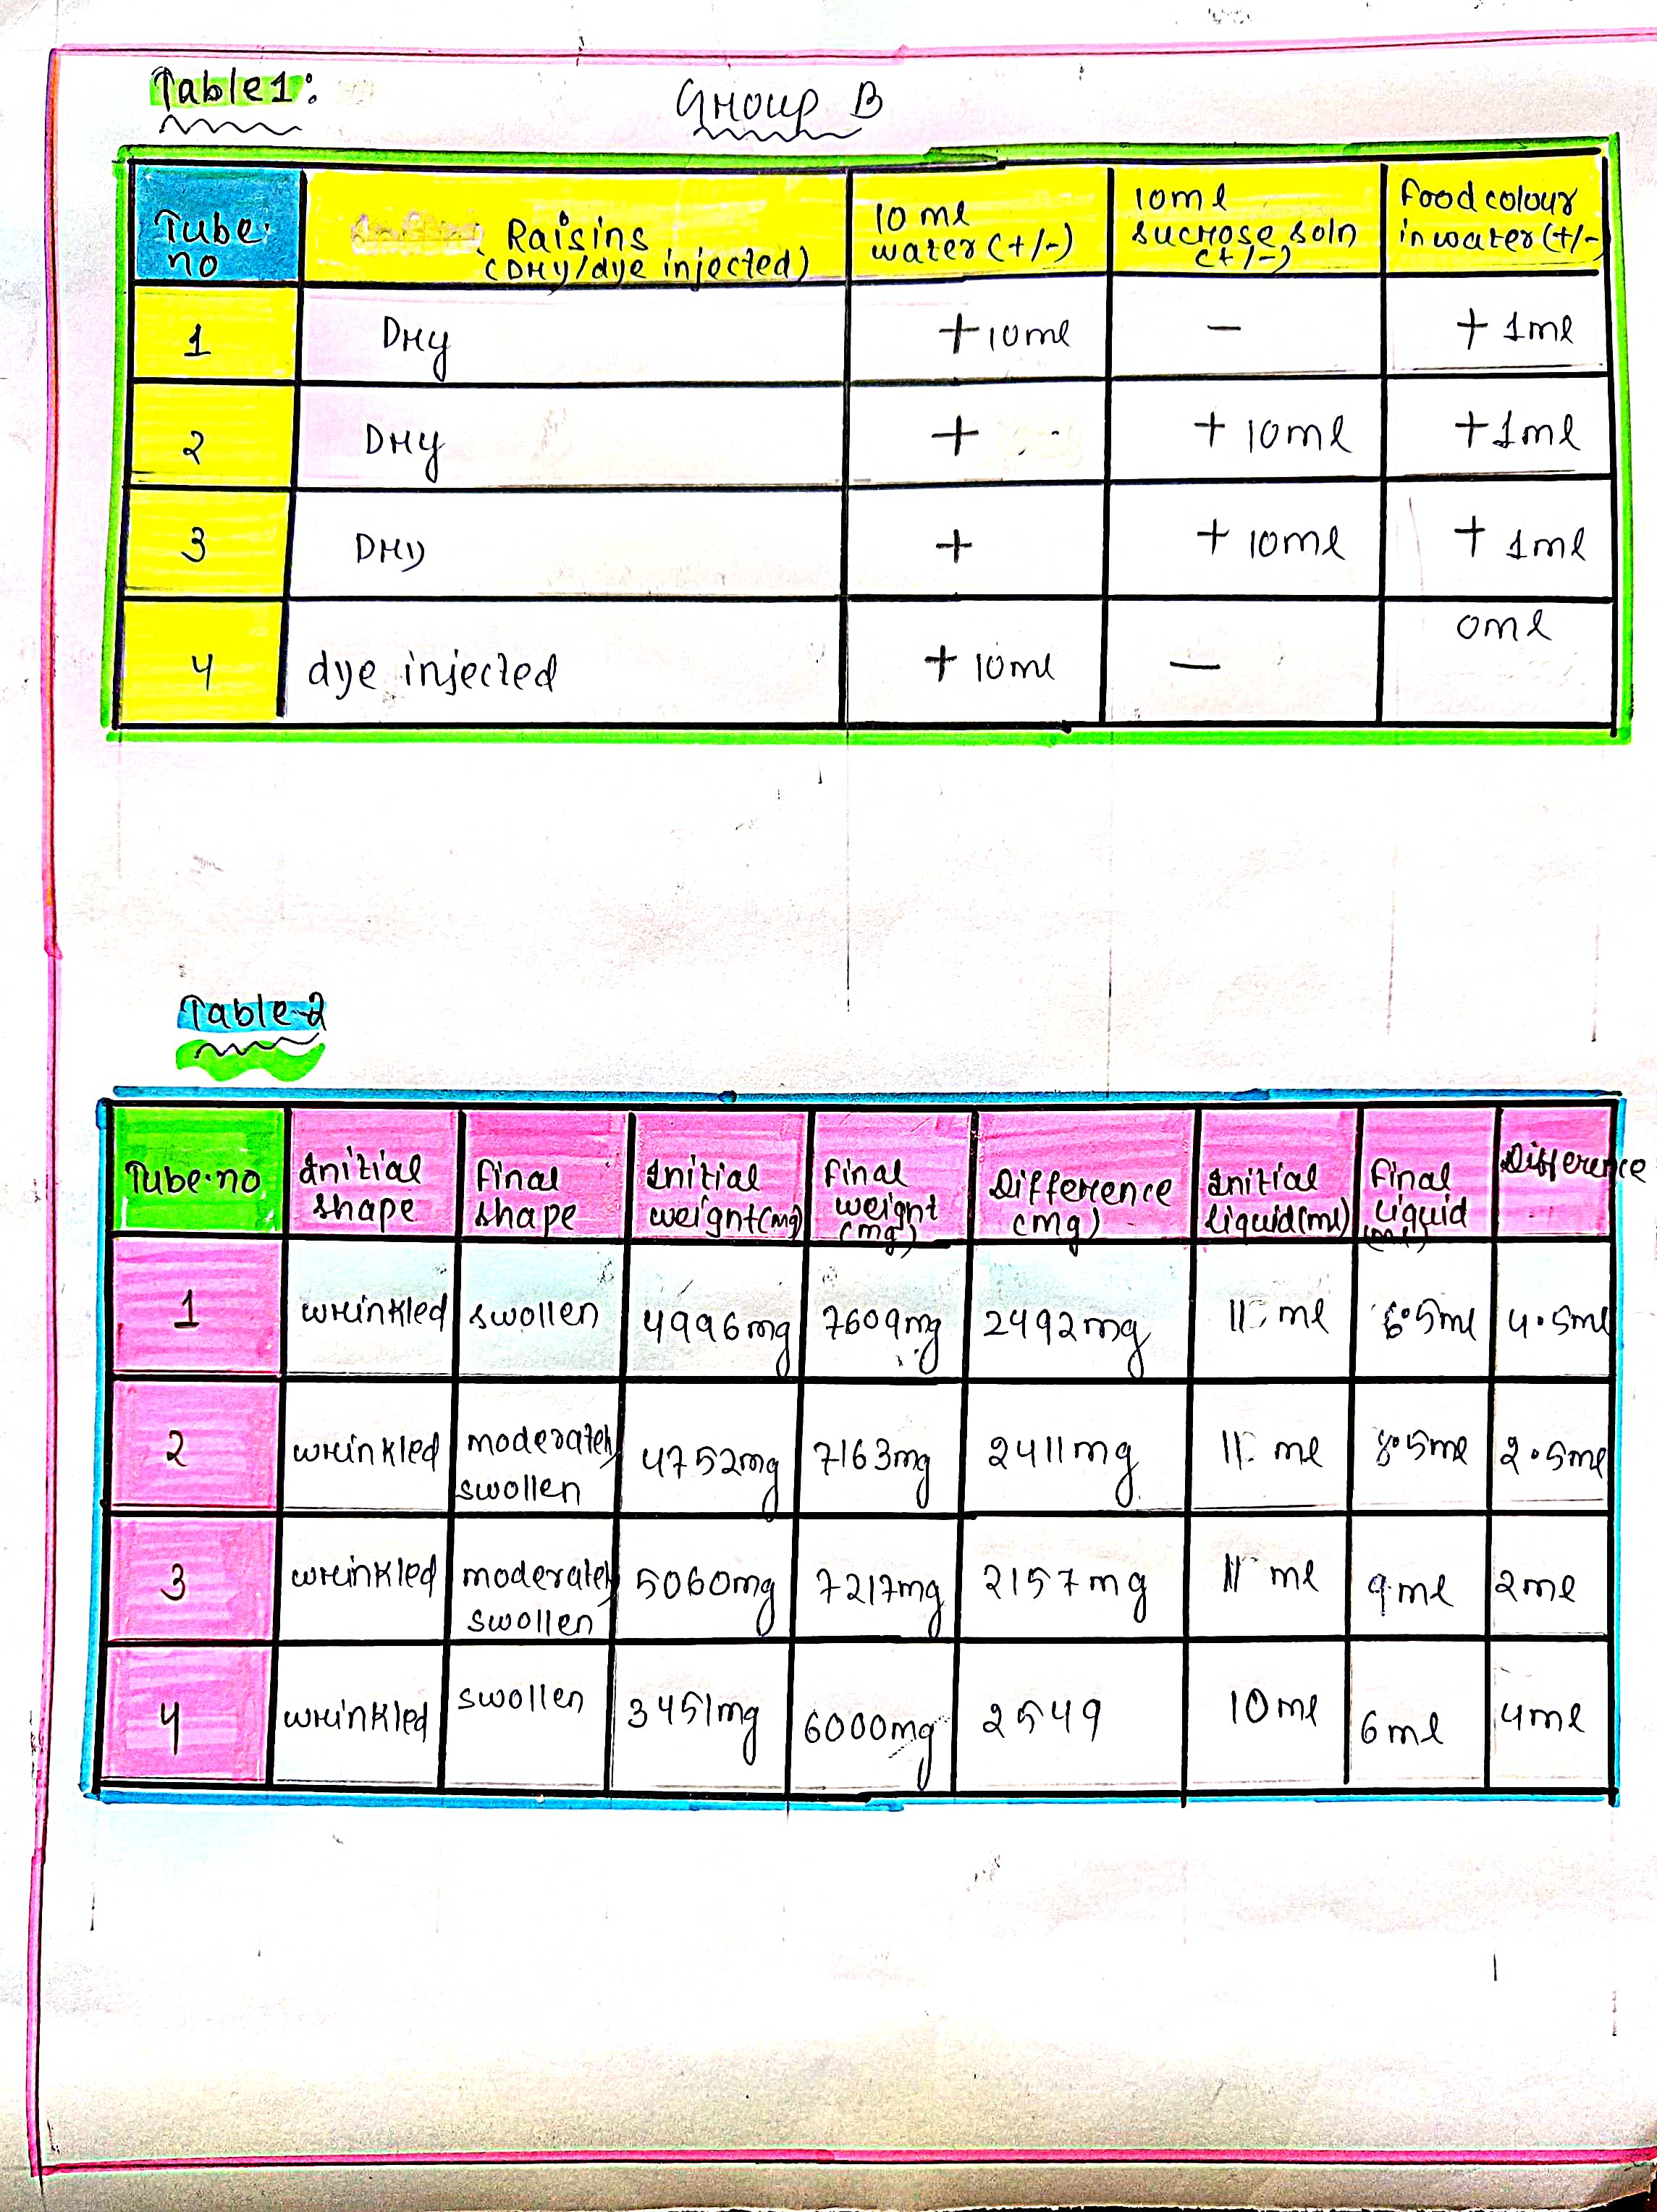 Table 1:
Group B
Tube. no
Raisins (Dry/dye injected)
10 ml water (+/-)
10ml sucrose soln (+/-)
Food colour in water (+/-)
1 Dry +10ml - + 1ml
2 Dry + + 10ml +1ml
3 Dry + + 10ml + 1ml
4 dye injected + 10ml - 0ml
Table-2
Tube.no
Initial shape
Final shape
Initial weight(mg)
Final weight (mg)
Difference (mg)
Initial liquid(ml)
Final liquid
Difference
1 wrinkled swollen 4996mg 7609mg 2492mg 11 ml 6.5ml 4.5ml
2 wrinkled moderately swollen 4752mg 7163mg 2411mg 11 ml 8.5ml 2.5ml
3 wrinkled moderately swollen 5060mg 7217mg 2157mg 11 ml 9ml 2ml
4 wrinkled swollen 3451mg 6000mg 2549 10ml 6ml 4ml